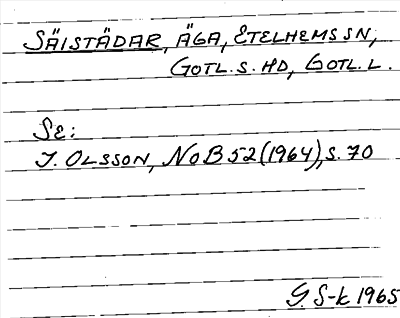 SÄISTÄDAR, ÄGA, ETELHEMS SN,
GOTL. S. HD, GOTL. L.
SE:
I. OLSSON, NoB 52 (1964), S. 70
G. S-k 1965